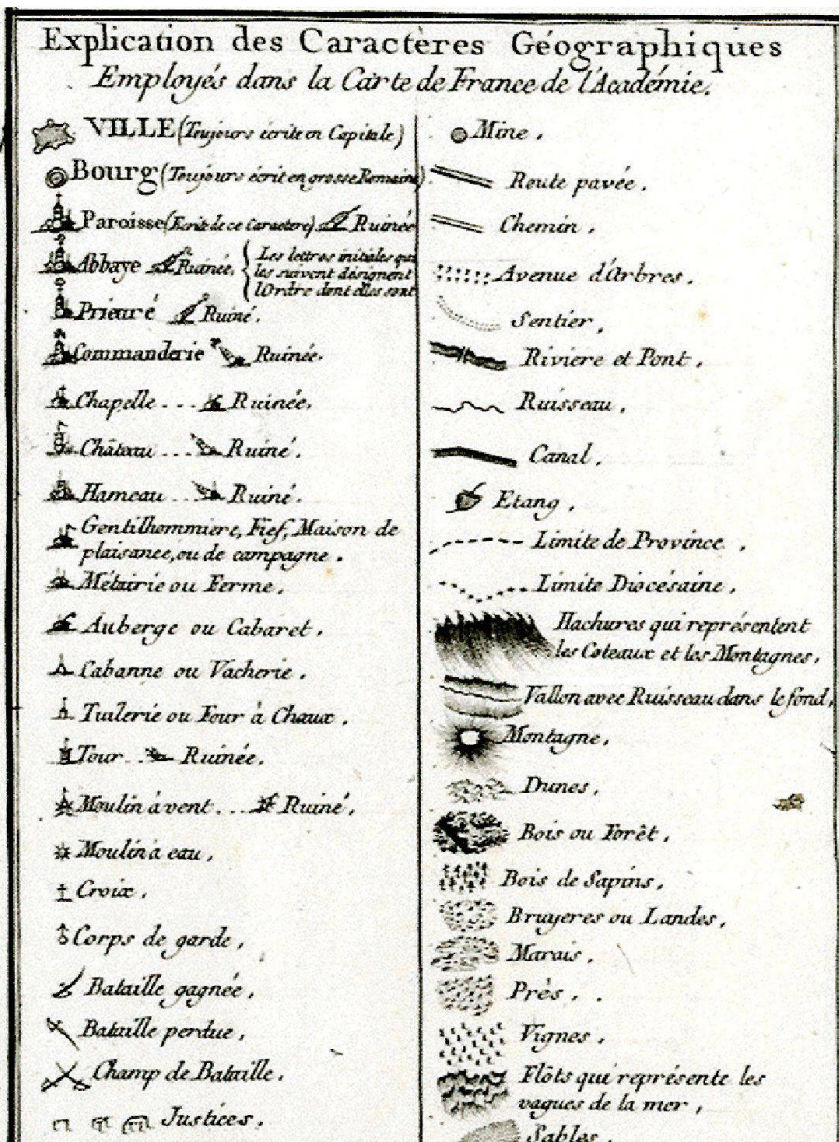 Explication des Caractères Géographiques
Employés dans la Carte de France de l'Académie.
VILLE (Toujours écrite en Capitale)
Bourg (Toujours écrit en grosse Romaine)
Paroisse (Ecrite de ce Caractere) Ruinée
Abbaye Ruinée. { Les lettres initiales qui
les suivent désignent
l'Ordre dont elles sont
Prieuré Ruiné.
Commanderie Ruinée.
Chapelle ... Ruinée.
Château ... Ruiné.
Hameau ... Ruiné.
Gentilhommiere, Fief, Maison de
plaisance, ou de campagne.
Métairie ou Ferme.
Auberge ou Cabaret.
Cabanne ou Vacherie.
Tuilerie ou Four à Chaux.
Tour ... Ruinée.
Moulin à vent ... Ruiné.
Moulin à eau.
Croix.
Corps de garde.
Bataille gagnée.
Bataille perdue.
Champ de Bataille.
Justices.
Mine.
Route pavée.
Chemin.
Avenue d'Arbres.
Sentier.
Riviere et Pont.
Ruisseau.
Canal.
Etang.
Limite de Province.
Limite Diocésaine.
Hachures qui représentent
les Coteaux et les Montagnes.
Vallon avec Ruisseau dans le fond.
Montagne.
Dunes.
Bois ou Forêt.
Bois de Sapins.
Bruyeres ou Landes.
Marais.
Près.
Vignes.
Flôts qui représente les
vagues de la mer,
Sables.